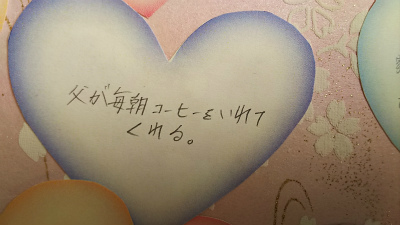 父が毎朝コーヒーをいれて
くれる。